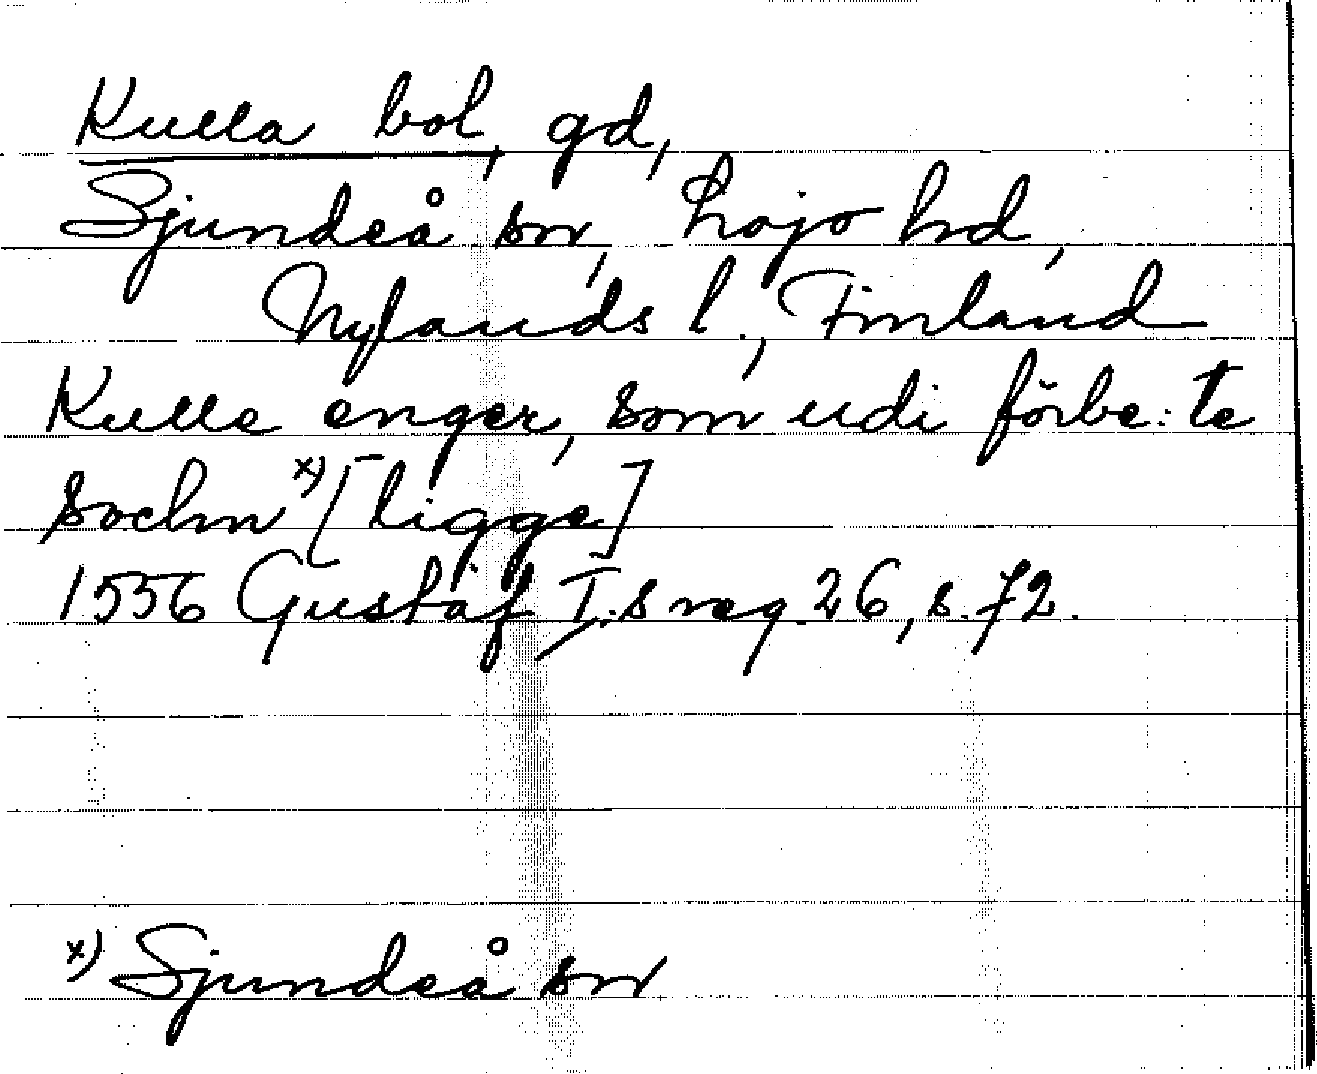 Kulla bol, gd,
Sjundeå sn, Lojo hd,
Nylands l., Finland
Kulle enger, som udi förbe:te
sochn x) [ligge]
1556 Gustaf I:s reg. 26, s. 72.
x) Sjundeå sn